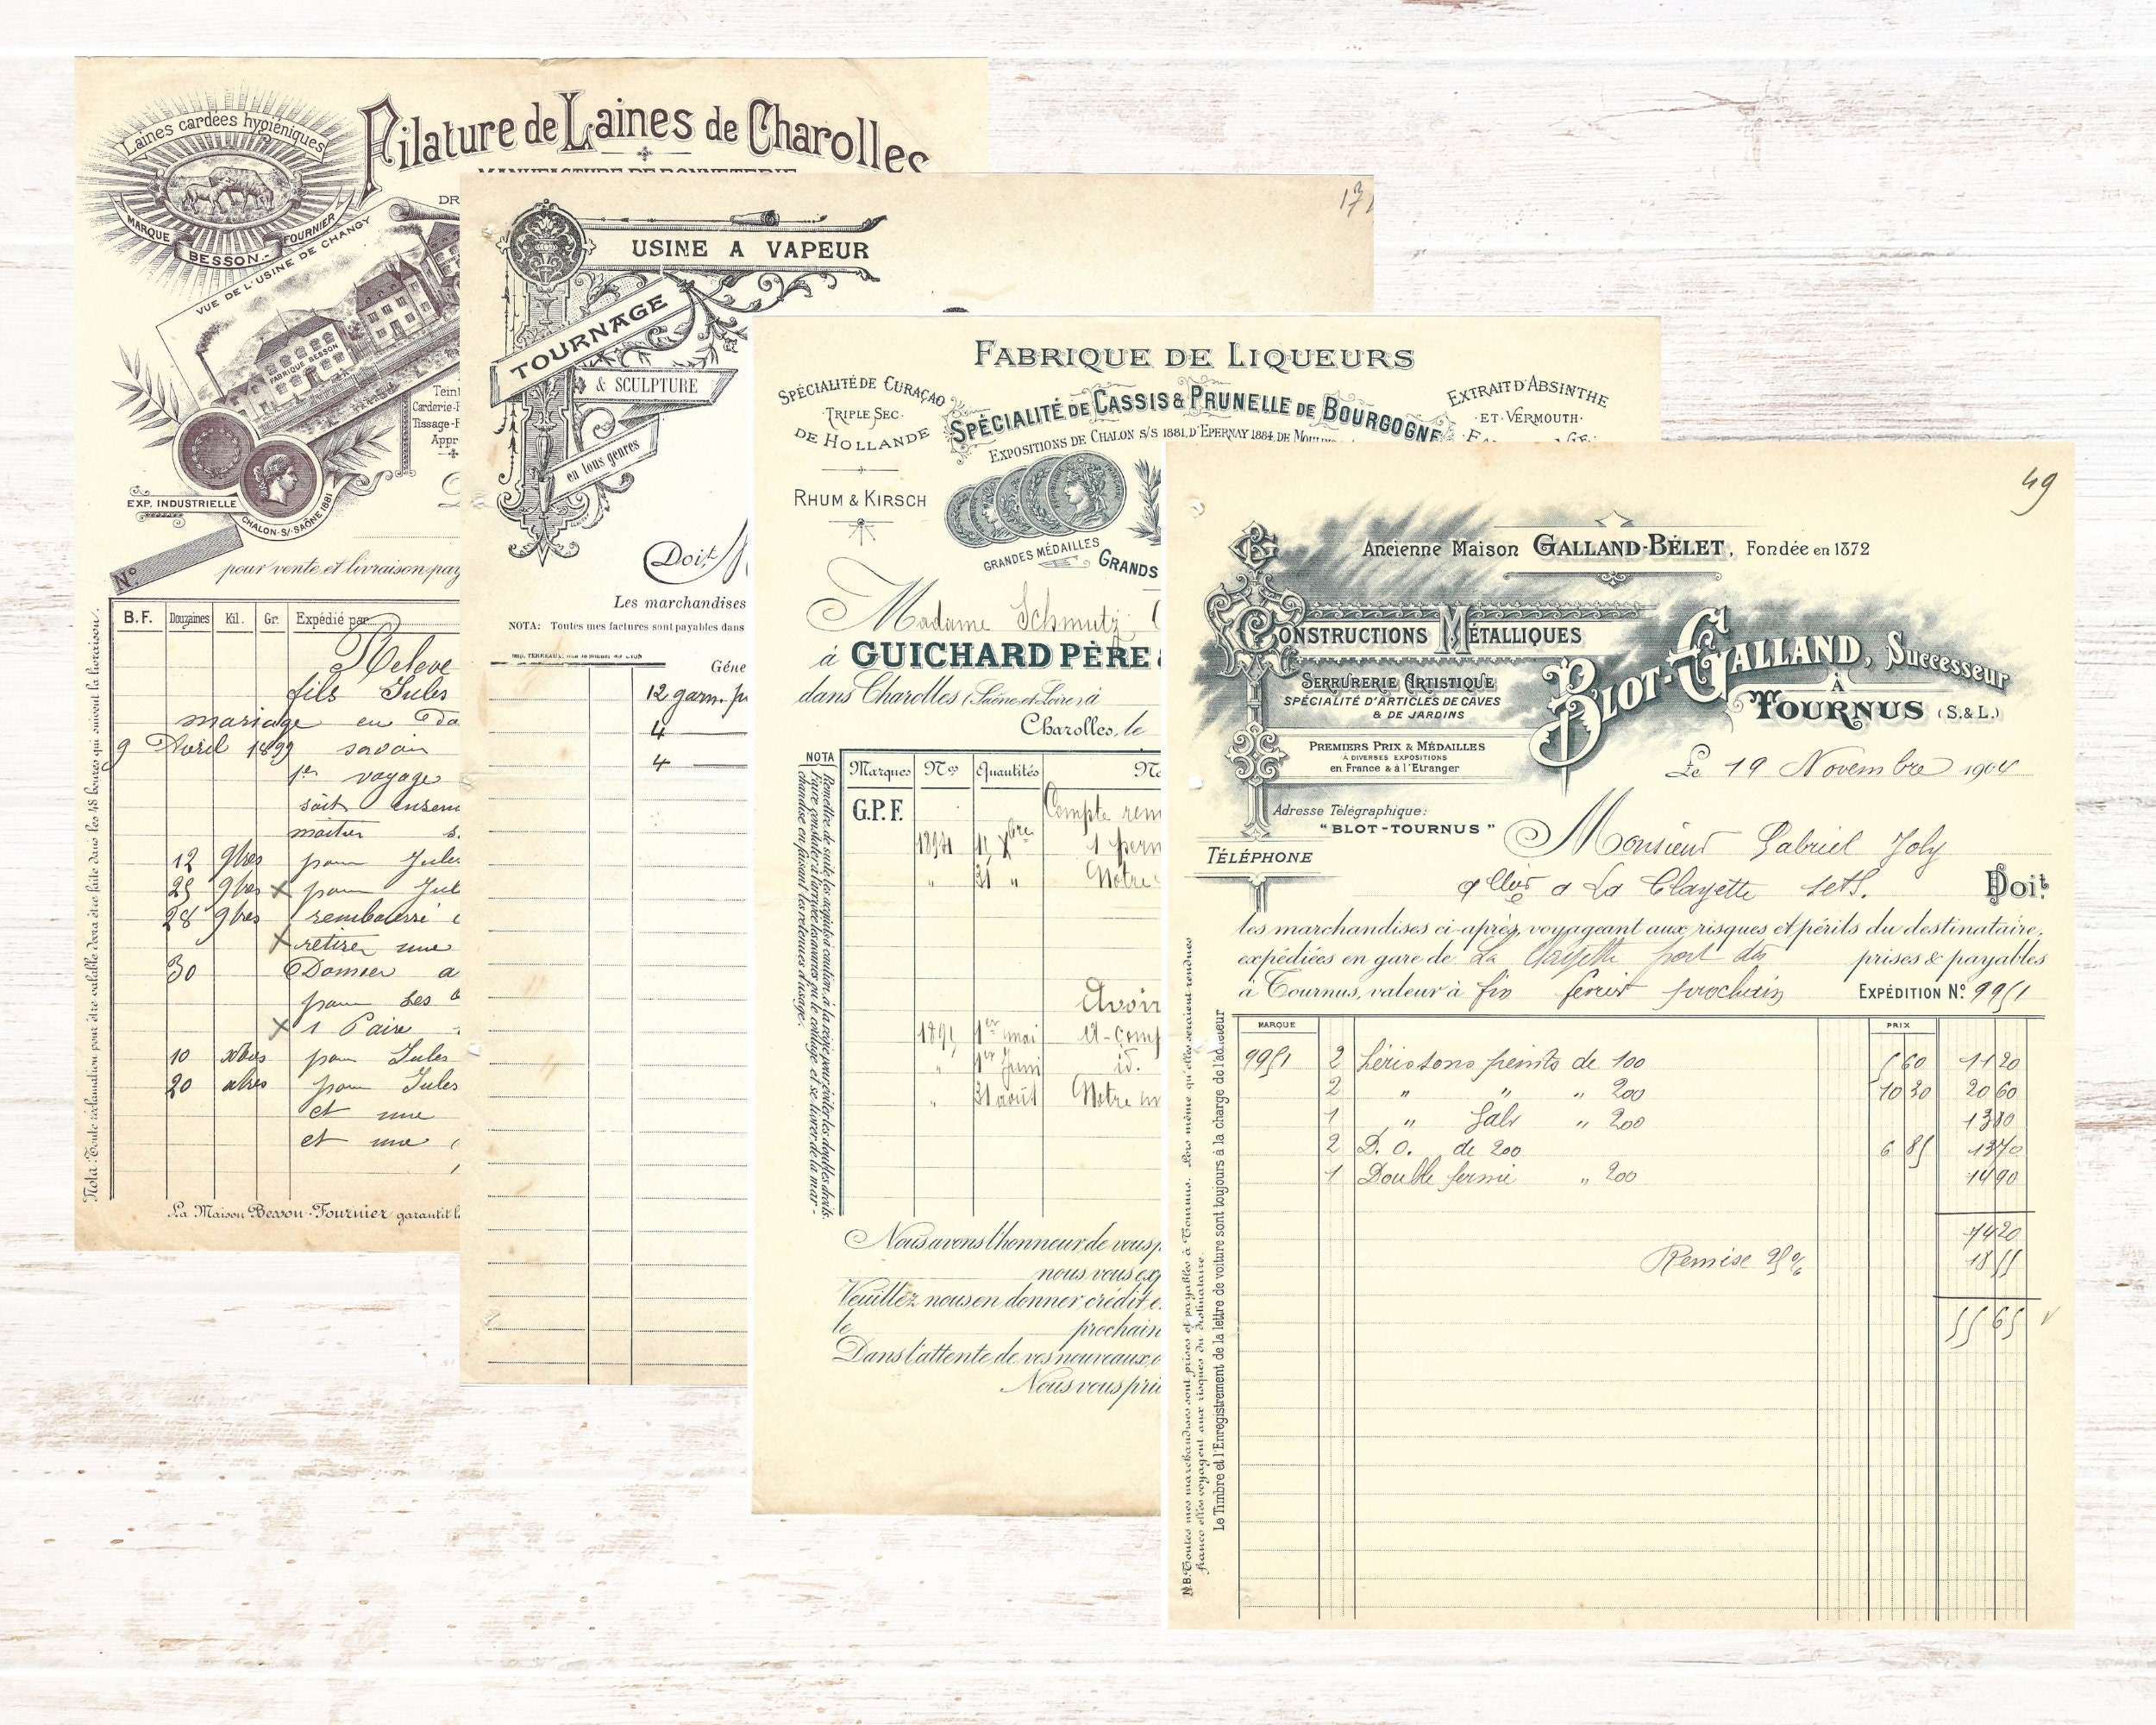 Laines cardées hygiéniques
Filature de Laines de Charolles
MANUFACTURE DE BONNETERIE
MARQUE BESSON - FOURNIER
VUE DE L'USINE DE CHANGY
DR
FABRIQUE BESSON
Teint
Carderie-F
Tissage-F
Appr
EXP. INDUSTRIELLE
CHALON-S/-SAÔNE 1881
No
pour vente et livraison pay
B.F. Douzaines Kil. Gr. Expédié par
Releve
fils Jules
mariage en
9 Avril 1899 savoir
1er voyage
soit ensem
12 9bres pour Jules
25 9bres x pour Jul
28 9bres remboursé
x retirer une
30
pour les
x 1 Paire
10 xbres pour Jules
20 xbres pour Jules
et une
et une
Nota: Toute réclamation pour être valable devra être faite dans les 48 heures qui suivent la livraison.
La Maison Besson-Fournier garantit l
171
USINE A VAPEUR
TOURNAGE
& SCULPTURE
en tous genres
Doit M
Les marchandises
NOTA: Toutes mes factures sont payables dans
Géne
12 garn. p
4
4
FABRIQUE DE LIQUEURS
SPÉCIALITÉ DE CURAÇAO
TRIPLE SEC
DE HOLLANDE
RHUM & KIRSCH
SPÉCIALITÉ DE CASSIS & PRUNELLE DE BOURGOGNE
EXPOSITIONS DE CHALON S/S 1881, D'EPERNAY 1884, DE MOULINS
EXTRAIT D'ABSINTHE
ET VERMOUTH
GRANDES MÉDAILLES
GRANDS
Madame Schmutz
à GUICHARD PÈRE &
dans Charolles (Saône et Loire) à
Charolles, le
NOTA
Remettre de suite les acquits à caution, à la régie pour éviter les doubles droits.
Faire constater à l'arrivée les avaries ou le coulage et se livrer de la mar-
chandise en faisant les retenues d'usage.
Marques Nos Quantités No
G.P.F. Compte rem
1894 11 Xbre 1
" 31 " Notre
Avoir
1895 1er mai a-comp
" 1er Juin id.
" 31 août Notre
Nous avons l'honneur de vous p
nous vous ex
Veuillez nous en donner crédit e
le prochain
Dans l'attente de vos nouveaux o
Nous vous prie
49
Ancienne Maison GALLAND-BÉLET, Fondée en 1872
CONSTRUCTIONS MÉTALLIQUES
SERRURERIE ARTISTIQUE
SPÉCIALITÉ D'ARTICLES DE CAVES
& DE JARDINS
BLOT-GALLAND, Successeur
À
TOURNUS (S.&L.)
PREMIERS PRIX & MÉDAILLES
A DIVERSES EXPOSITIONS
en France & à l'Etranger
Le 19 Novembre 1904
Adresse Télégraphique:
"BLOT-TOURNUS"
TÉLÉPHONE
Monsieur Gabriel Joly
a La Clayette S et L. Doit
les marchandises ci-après, voyageant aux risques et périls du destinataire,
expédiées en gare de La Clayette port dû prises & payables
à Tournus, valeur à fin février prochain EXPÉDITION No. 9951
MARQUE PRIX
9951 2 Hérissons peints de 100 5 60 11 20
2 " " " 200 10 30 20 60
1 " Galv " 200 13 80
2 D.O. de 200 6 85 13 70
1 Double fermé " 200 14 90
74 20
Remise 25% 18 55
55 65
N.B. Toutes mes marchandises sont prises et payables à Tournus. Lors même qu'elles seraient rendues
franco elles voyagent aux risques du destinataire.
Le Timbre et l'Enregistrement de la lettre de voiture sont toujours à la charge de l'acheteur